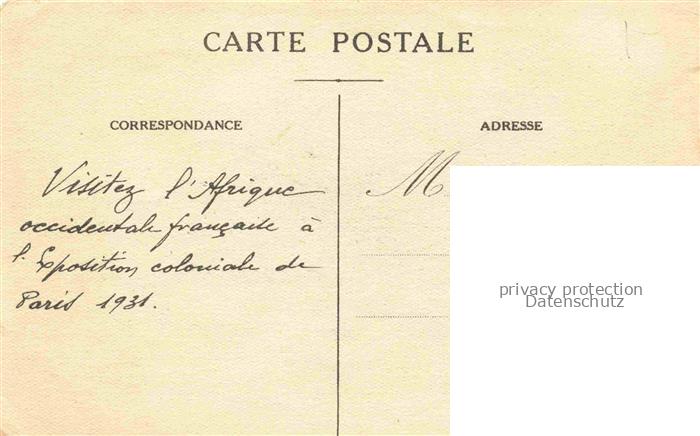 CARTE POSTALE
CORRESPONDANCE
Visitez l'Afrique
occidentale française à
l'Exposition coloniale de
Paris 1931.
ADRESSE
M
privacy protection
Datenschutz